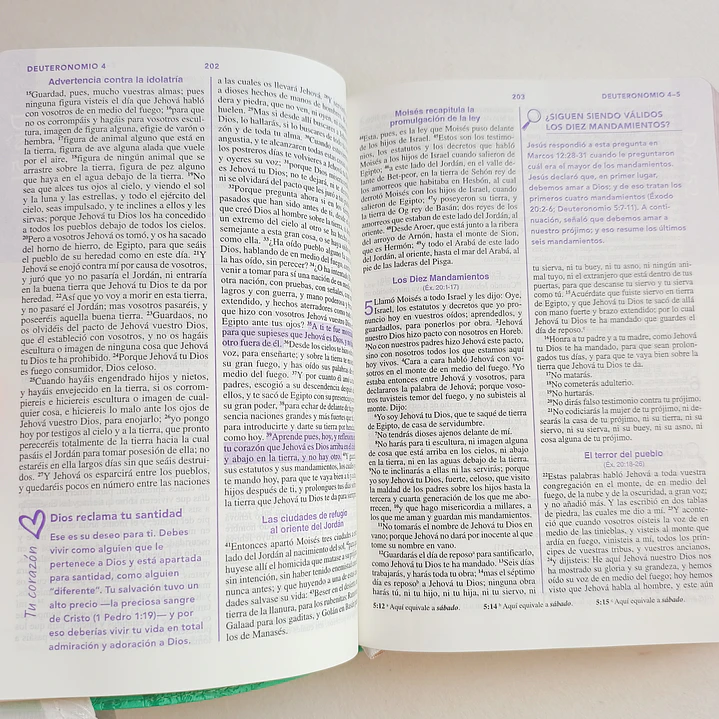 DEUTERONOMIO 4
202
Advertencia contra la idolatría
15Guardad, pues, mucho vuestras almas; pues
ninguna figura visteis el día que Jehová habló
con vosotros de en medio del fuego; 16para que
no os corrompáis y hagáis para vosotros escul-
tura, imagen de figura alguna, efigie de varón o
hembra, 17figura de animal alguno que está en
la tierra, figura de ave alguna alada que vuele
por el aire, 18figura de ningún animal que se
arrastre sobre la tierra, figura de pez alguno
que haya en el agua debajo de la tierra. 19No
sea que alces tus ojos al cielo, y viendo el sol
y la luna y las estrellas, y todo el ejército del
cielo, seas impulsado, y te inclines a ellos y les
sirvas; porque Jehová tu Dios los ha concedido
a todos los pueblos debajo de todos los cielos.
20Pero a vosotros Jehová os tomó, y os ha sacado
del horno de hierro, de Egipto, para que seáis
el pueblo de su heredad como en este día. 21Y
Jehová se enojó contra mí por causa de vosotros,
y juró que yo no pasaría el Jordán, ni entraría
en la buena tierra que Jehová tu Dios te da por
heredad. 22Así que yo voy a morir en esta tierra,
y no pasaré el Jordán; mas vosotros pasaréis, y
poseeréis aquella buena tierra. 23Guardaos, no
os olvidéis del pacto de Jehová vuestro Dios,
que él estableció con vosotros, y no os hagáis
escultura o imagen de ninguna cosa que Jehová
tu Dios te ha prohibido. 24Porque Jehová tu Dios
es fuego consumidor, Dios celoso.
25Cuando hayáis engendrado hijos y nietos,
y hayáis envejecido en la tierra, si os corrom-
piereis e hiciereis escultura o imagen de cual-
quier cosa, e hiciereis lo malo ante los ojos de
Jehová vuestro Dios, para enojarlo; 26yo pongo
hoy por testigos al cielo y a la tierra, que pronto
pereceréis totalmente de la tierra hacia la cual
pasáis el Jordán para tomar posesión de ella; no
estaréis en ella largos días sin que seáis destrui-
dos. 27Y Jehová os esparcirá entre los pueblos,
y quedaréis pocos en número entre las naciones
Tu corazón
Dios reclama tu santidad
Ese es su deseo para ti. Debes
vivir como alguien que le
pertenece a Dios y está apartada
para santidad, como alguien
"diferente". Tu salvación tuvo un
alto precio —la preciosa sangre
de Cristo (1 Pedro 1:19)— y por
eso deberías vivir tu vida en total
admiración y adoración a Dios.
a las cuales os llevará Jehová.
a dioses hechos de manos de
dera y piedra, que no ven, ni oyen,
huelen. 29Mas si desde allí buscares
Dios, lo hallarás, si lo buscares de
zón y de toda tu alma. 30Cuando
angustia, y te alcanzaren todas estas
los postreros días te volvieres a Jehová
y oyeres su voz; 31porque Dios
es Jehová tu Dios; no te dejará, ni te
ni se olvidará del pacto que les
32Porque pregunta ahora si en
pasados que han sido antes de ti, desde
que creó Dios al hombre sobre la
un extremo del cielo al otro se ha
semejante a esta gran cosa, o se haya
como ella. 33¿Ha oído pueblo alguno la
Dios, hablando de en medio del fuego,
la has oído, sin perecer? 34¿O ha
venir a tomar para sí una nación de en
otra nación, con pruebas, con señales,
lagros y con guerra, y mano poderosa
extendido, y hechos aterradores como
que hizo con vosotros Jehová vuestro
Egipto ante tus ojos? 35A ti te fue
para que supieses que Jehová es Dios, y
otro fuera de él. 36Desde los cielos te hizo
voz, para enseñarte; y sobre la tierra te
su gran fuego, y has oído sus palabras
medio del fuego. 37Y por cuanto él amó a
padres, escogió a su descendencia después
ellos, y te sacó de Egipto con su presencia
su gran poder, 38para echar de delante de
sencia naciones grandes y más fuertes
para introducirte y darte su tierra por
como hoy. 39Aprende pues, hoy, y reflexiona
tu corazón que Jehová es Dios arriba en el
y abajo en la tierra, y no hay otro. 40Y
sus estatutos y sus mandamientos, los cuales
te mando hoy, para que te vaya bien a ti y
hijos después de ti, y prolongues tus días
la tierra que Jehová tu Dios te da para
Las ciudades de refugio
al oriente del Jordán
41Entonces apartó Moisés tres ciudades a
lado del Jordán al nacimiento del sol,
huyese allí el homicida que matase a su
sin intención, sin haber tenido enemistad
nunca antes; y que huyendo a una de estas
dades salvase su vida: 43Beser en el desierto
tierra de la llanura, para los rubenitas; Ramot
Galaad para los gaditas, y Golán en Basán
los de Manasés.
203
DEUTERONOMIO 4–5
Moisés recapitula la
promulgación de la ley
44Esta, pues, es la ley que Moisés puso delante
de los hijos de Israel. 45Estos son los testimo-
nios, los estatutos y los decretos que habló
Moisés a los hijos de Israel cuando salieron de
Egipto; 46a este lado del Jordán, en el valle de-
lante de Bet-peor, en la tierra de Sehón rey de
los amorreos que habitaba en Hesbón, al cual
derrotó Moisés con los hijos de Israel, cuando
salieron de Egipto; 47y poseyeron su tierra, y
la tierra de Og rey de Basán; dos reyes de los
amorreos que estaban de este lado del Jordán, al
oriente. 48Desde Aroer, que está junto a la ribera
del arroyo de Arnón, hasta el monte de Sion,
que es Hermón; 49y todo el Arabá de este lado
del Jordán, al oriente, hasta el mar del Arabá, al
pie de las laderas del Pisga.
Los Diez Mandamientos
(Éx. 20:1-17)
5Llamó Moisés a todo Israel y les dijo: Oye,
Israel, los estatutos y decretos que yo pro-
nuncio hoy en vuestros oídos; aprendedlos, y
guardadlos, para ponerlos por obra. 2Jehová
nuestro Dios hizo pacto con nosotros en Horeb.
3No con nuestros padres hizo Jehová este pacto,
sino con nosotros todos los que estamos aquí
hoy vivos. 4Cara a cara habló Jehová con vo-
sotros en el monte de en medio del fuego. 5Yo
estaba entonces entre Jehová y vosotros, para
declararos la palabra de Jehová; porque voso-
tros tuvisteis temor del fuego, y no subisteis al
monte. Dijo:
6Yo soy Jehová tu Dios, que te saqué de tierra
de Egipto, de casa de servidumbre.
7No tendrás dioses ajenos delante de mí.
8No harás para ti escultura, ni imagen alguna
de cosa que está arriba en los cielos, ni abajo
en la tierra, ni en las aguas debajo de la tierra.
9No te inclinarás a ellas ni las servirás; porque
yo soy Jehová tu Dios, fuerte, celoso, que visito
la maldad de los padres sobre los hijos hasta la
tercera y cuarta generación de los que me abo-
rrecen, 10y que hago misericordia a millares, a
los que me aman y guardan mis mandamientos.
11No tomarás el nombre de Jehová tu Dios en
vano; porque Jehová no dará por inocente al que
tome su nombre en vano.
12Guardarás el día de reposo para santificarlo,
como Jehová tu Dios te ha mandado. 13Seis días
trabajarás, y harás toda tu obra; 14mas el séptimo
día es reposo a Jehová tu Dios; ninguna obra
harás tú, ni tu hijo, ni tu hija, ni tu siervo, ni
¿SIGUEN SIENDO VÁLIDOS
LOS DIEZ MANDAMIENTOS?
Jesús respondió a esta pregunta en
Marcos 12:28-31 cuando le preguntaron
cuál era el mayor de los mandamientos.
Jesús declaró que, en primer lugar,
debemos amar a Dios; y de eso tratan los
primeros cuatro mandamientos (Éxodo
20:2-6; Deuteronomio 5:7-11). A conti-
nuación, señaló que debemos amar a
nuestro prójimo; y eso resume los últimos
seis mandamientos.
tu sierva, ni tu buey, ni tu asno, ni ningún ani-
mal tuyo, ni el extranjero que está dentro de tus
puertas, para que descanse tu siervo y tu sierva
como tú. 15Acuérdate que fuiste siervo en tierra
de Egipto, y que Jehová tu Dios te sacó de allá
con mano fuerte y brazo extendido; por lo cual
Jehová tu Dios te ha mandado que guardes el
día de reposo.
16Honra a tu padre y a tu madre, como Jehová
tu Dios te ha mandado, para que sean prolon-
gados tus días, y para que te vaya bien sobre la
tierra que Jehová tu Dios te da.
17No matarás.
18No cometerás adulterio.
19No hurtarás.
20No dirás falso testimonio contra tu prójimo.
21No codiciarás la mujer de tu prójimo, ni de-
searás la casa de tu prójimo, ni su tierra, ni su
siervo, ni su sierva, ni su buey, ni su asno, ni
cosa alguna de tu prójimo.
El terror del pueblo
(Éx. 20:18-26)
22Estas palabras habló Jehová a toda vuestra
congregación en el monte, de en medio del
fuego, de la nube y de la oscuridad, a gran voz;
y no añadió más. Y las escribió en dos tablas
de piedra, las cuales me dio a mí. 23Y aconte-
ció que cuando vosotros oísteis la voz de en
medio de las tinieblas, y visteis al monte que
ardía en fuego, vinisteis a mí, todos los prín-
cipes de vuestras tribus, y vuestros ancianos,
24y dijisteis: He aquí Jehová nuestro Dios nos
ha mostrado su gloria y su grandeza, y hemos
oído su voz de en medio del fuego; hoy hemos
visto que Jehová habla al hombre, y este aún
5:12 Aquí equivale a sábado. 5:14 Aquí equivale a sábado. 5:15 Aquí equivale a sábado.